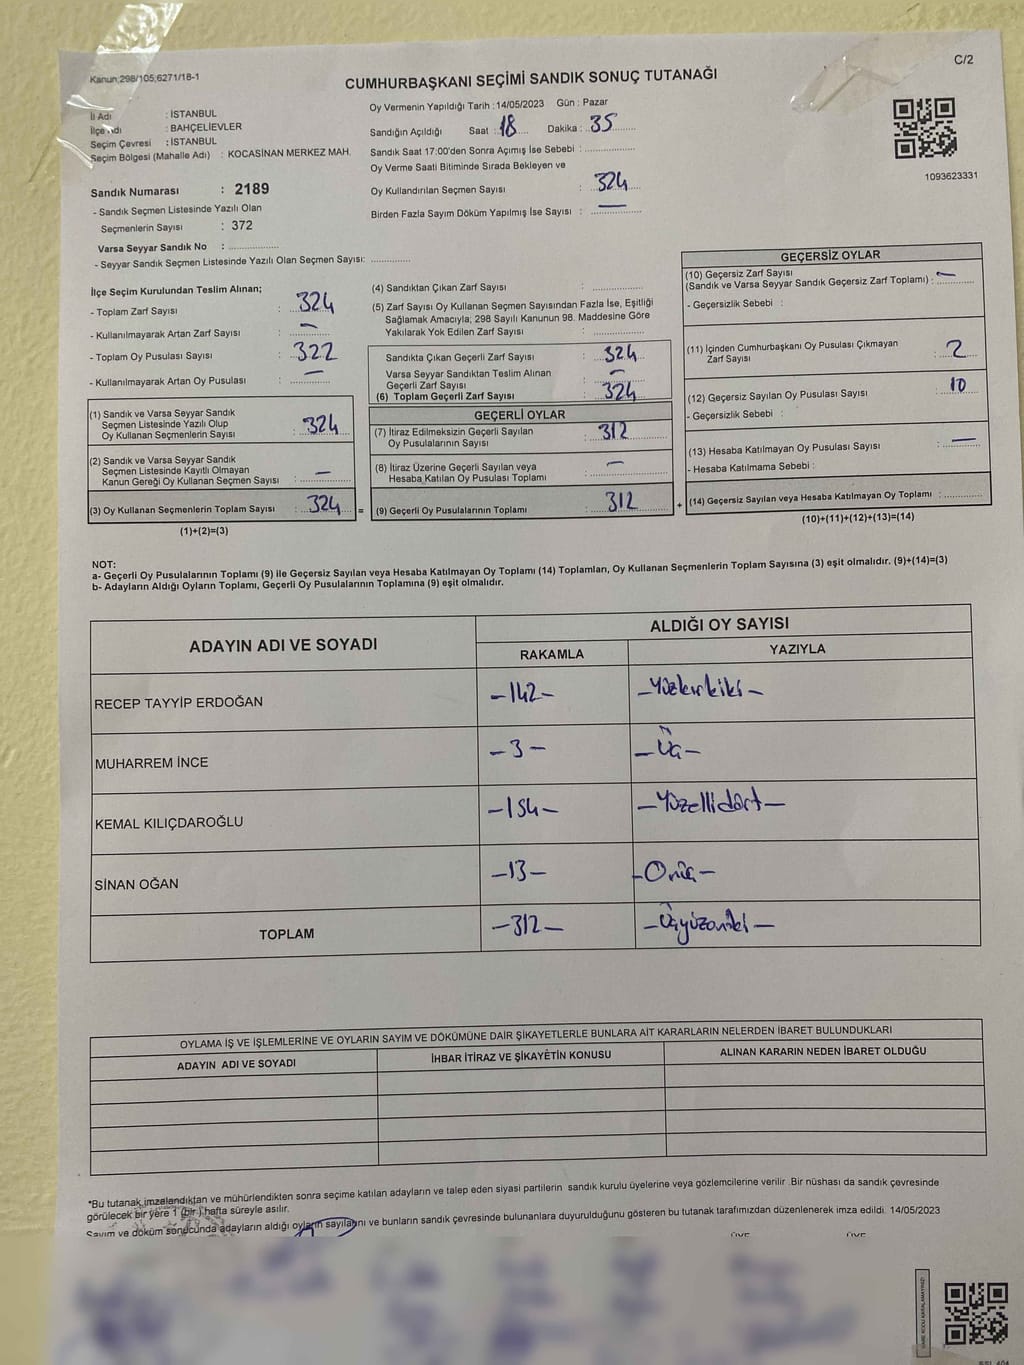 Kanun;298/105;6271/18-1
CUMHURBAŞKANI SEÇİMİ SANDIK SONUÇ TUTANAĞI
C/2
İl Adı : İSTANBUL
İlçe Adı : BAHÇELİEVLER
Seçim Çevresi : İSTANBUL
Seçim Bölgesi (Mahalle Adı) : KOCASİNAN MERKEZ MAH.
Oy Vermenin Yapıldığı Tarih : 14/05/2023 Gün : Pazar
Sandığın Açıldığı Saat : 18 Dakika : 35
Sandık Saat 17:00'den Sonra Açımış İse Sebebi :
Oy Verme Saati Bitiminde Sırada Bekleyen ve
Oy Kullandırılan Seçmen Sayısı : 324
Birden Fazla Sayım Döküm Yapılmış İse Sayısı : —
1093623331
Sandık Numarası : 2189
- Sandık Seçmen Listesinde Yazılı Olan
Seçmenlerin Sayısı : 372
Varsa Seyyar Sandık No :
- Seyyar Sandık Seçmen Listesinde Yazılı Olan Seçmen Sayısı:
İlçe Seçim Kurulundan Teslim Alınan;
- Toplam Zarf Sayısı : 324
- Kullanılmayarak Artan Zarf Sayısı : —
- Toplam Oy Pusulası Sayısı : 322
- Kullanılmayarak Artan Oy Pusulası : —
(1) Sandık ve Varsa Seyyar Sandık
Seçmen Listesinde Yazılı Olup
Oy Kullanan Seçmenlerin Sayısı : 324
(2) Sandık ve Varsa Seyyar Sandık
Seçmen Listesinde Kayıtlı Olmayan
Kanun Gereği Oy Kullanan Seçmen Sayısı : —
(3) Oy Kullanan Seçmenlerin Toplam Sayısı : 324 =
(1)+(2)=(3)
(4) Sandıktan Çıkan Zarf Sayısı :
(5) Zarf Sayısı Oy Kullanan Seçmen Sayısından Fazla İse, Eşitliği
Sağlamak Amacıyla; 298 Sayılı Kanunun 98. Maddesine Göre
Yakılarak Yok Edilen Zarf Sayısı :
Sandıkta Çıkan Geçerli Zarf Sayısı : 324
Varsa Seyyar Sandıktan Teslim Alınan
Geçerli Zarf Sayısı : —
(6) Toplam Geçerli Zarf Sayısı : 324
GEÇERLİ OYLAR
(7) İtiraz Edilmeksizin Geçerli Sayılan
Oy Pusulalarının Sayısı : 312
(8) İtiraz Üzerine Geçerli Sayılan veya
Hesaba Katılan Oy Pusulası Toplamı : —
(9) Geçerli Oy Pusulalarının Toplamı : 312 +
GEÇERSİZ OYLAR
(10) Geçersiz Zarf Sayısı
(Sandık ve Varsa Seyyar Sandık Geçersiz Zarf Toplamı) : —
- Geçersizlik Sebebi :
(11) İçinden Cumhurbaşkanı Oy Pusulası Çıkmayan
Zarf Sayısı : 2
(12) Geçersiz Sayılan Oy Pusulası Sayısı : 10
- Geçersizlik Sebebi :
(13) Hesaba Katılmayan Oy Pusulası Sayısı : —
- Hesaba Katılmama Sebebi :
(14) Geçersiz Sayılan veya Hesaba Katılmayan Oy Toplamı :
(10)+(11)+(12)+(13)=(14)
NOT:
a- Geçerli Oy Pusulalarının Toplamı (9) ile Geçersiz Sayılan veya Hesaba Katılmayan Oy Toplamı (14) Toplamları, Oy Kullanan Seçmenlerin Toplam Sayısına (3) eşit olmalıdır. (9)+(14)=(3)
b- Adayların Aldığı Oyların Toplamı, Geçerli Oy Pusulalarının Toplamına (9) eşit olmalıdır.
ADAYIN ADI VE SOYADI
ALDIĞI OY SAYISI
RAKAMLA YAZIYLA
RECEP TAYYİP ERDOĞAN -142- -Yüzkırkiki-
MUHARREM İNCE -3- -Üç-
KEMAL KILIÇDAROĞLU -154- -Yüzellidört-
SİNAN OĞAN -13- -Onüç-
TOPLAM -312- -Üçyüzoniki-
OYLAMA İŞ VE İŞLEMLERİNE VE OYLARIN SAYIM VE DÖKÜMÜNE DAİR ŞİKAYETLERLE BUNLARA AİT KARARLARIN NELERDEN İBARET BULUNDUKLARI
ADAYIN ADI VE SOYADI İHBAR İTİRAZ VE ŞİKAYETİN KONUSU ALINAN KARARIN NEDEN İBARET OLDUĞU
*Bu tutanak imzalandıktan ve mühürlendikten sonra seçime katılan adayların ve talep eden siyasi partilerin sandık kurulu üyelerine veya gözlemcilerine verilir .Bir nüshası da sandık çevresinde
görülecek bir yere 1 (bir) hafta süreyle asılır.
Sayım ve döküm sonucunda adayların aldığı oyların sayılarını ve bunların sandık çevresinde bulunanlara duyurulduğunu gösteren bu tutanak tarafımızdan düzenlenerek imza edildi. 14/05/2023
ÜYE ÜYE